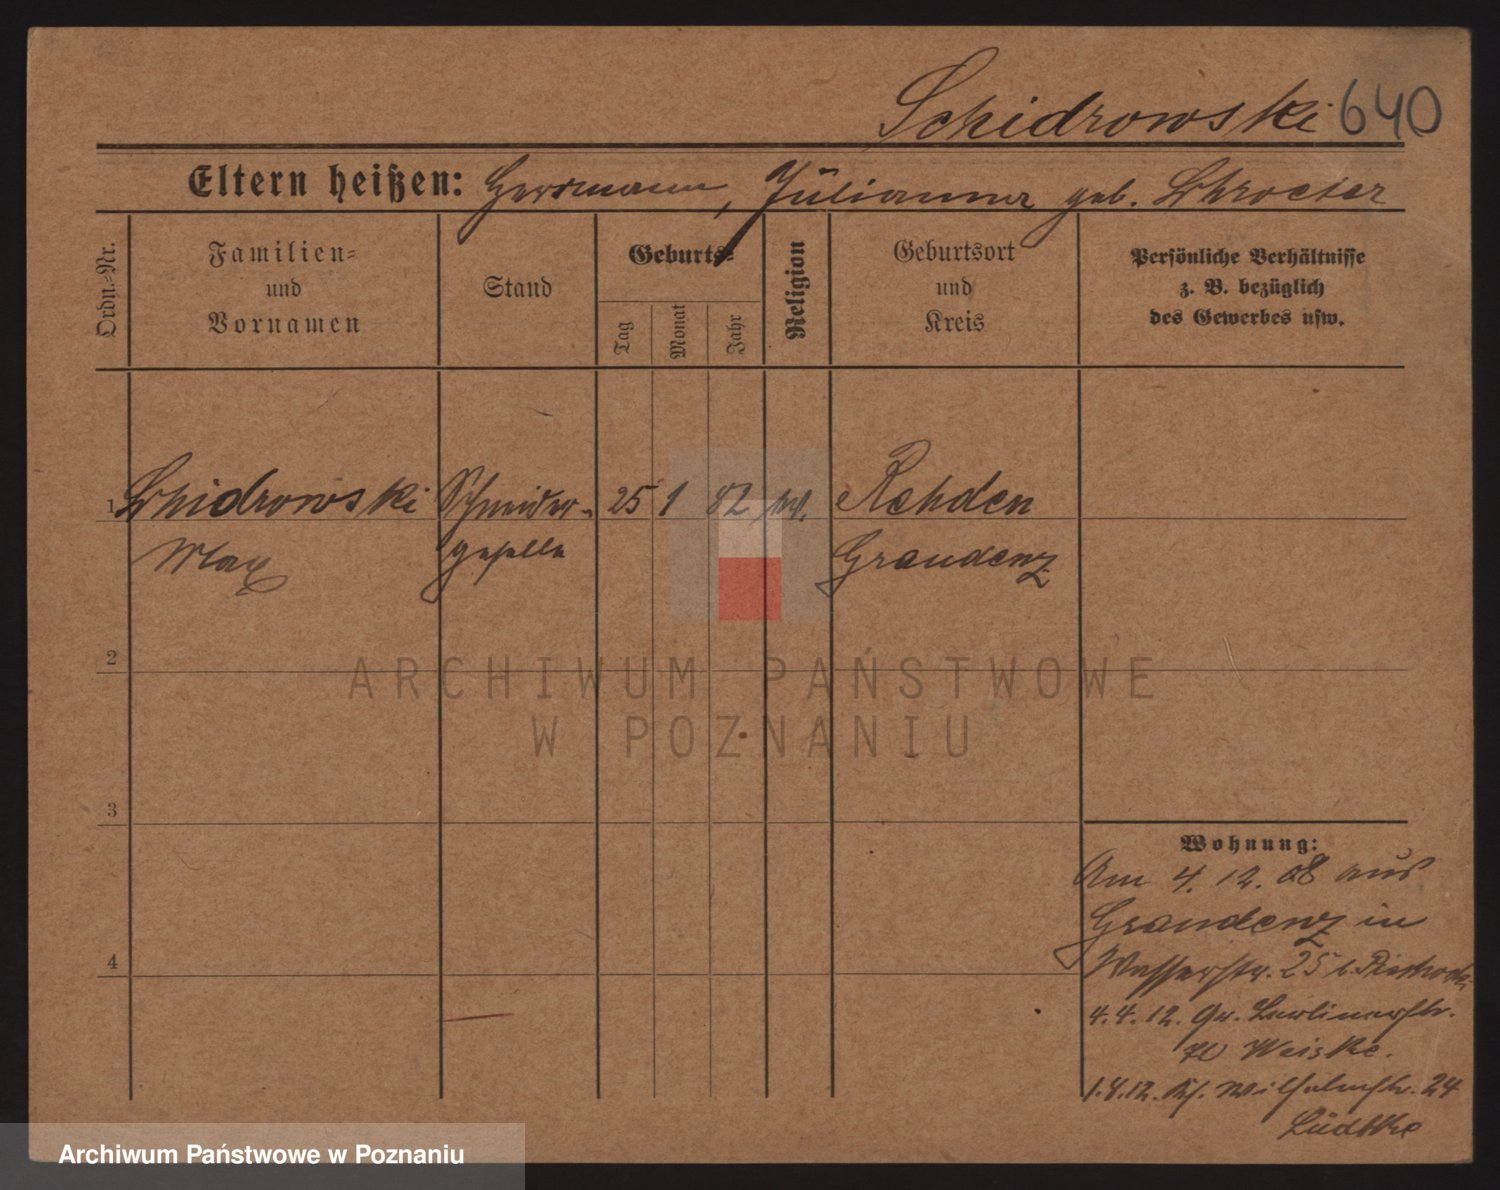 Schidrowski 640
Eltern heißen: Herrmann, Julianna geb. Schroeter
Ordn.-Nr.
Familien-
und
Vornamen
Stand
Geburts-
Tag
Monat
Jahr
Religion
Geburtsort
und
Kreis
Persönliche Verhältnisse
z. B. bezüglich
des Gewerbes usw.
1 Schidrowski Schneider- 25 1 82 Rehden
Max geselle Graudenz
2
3
4
Wohnung:
Am 4.12.08 aus
Graudenz in
Wasserstr. 25 b.
4.4.12. Gr. Berlinerstr.
70 Weiske.
1.8.12. Ks. Wilhelmstr. 24
Lüdtke
ARCHIWUM PAŃSTWOWE
W POZNANIU
Archiwum Państwowe w Poznaniu